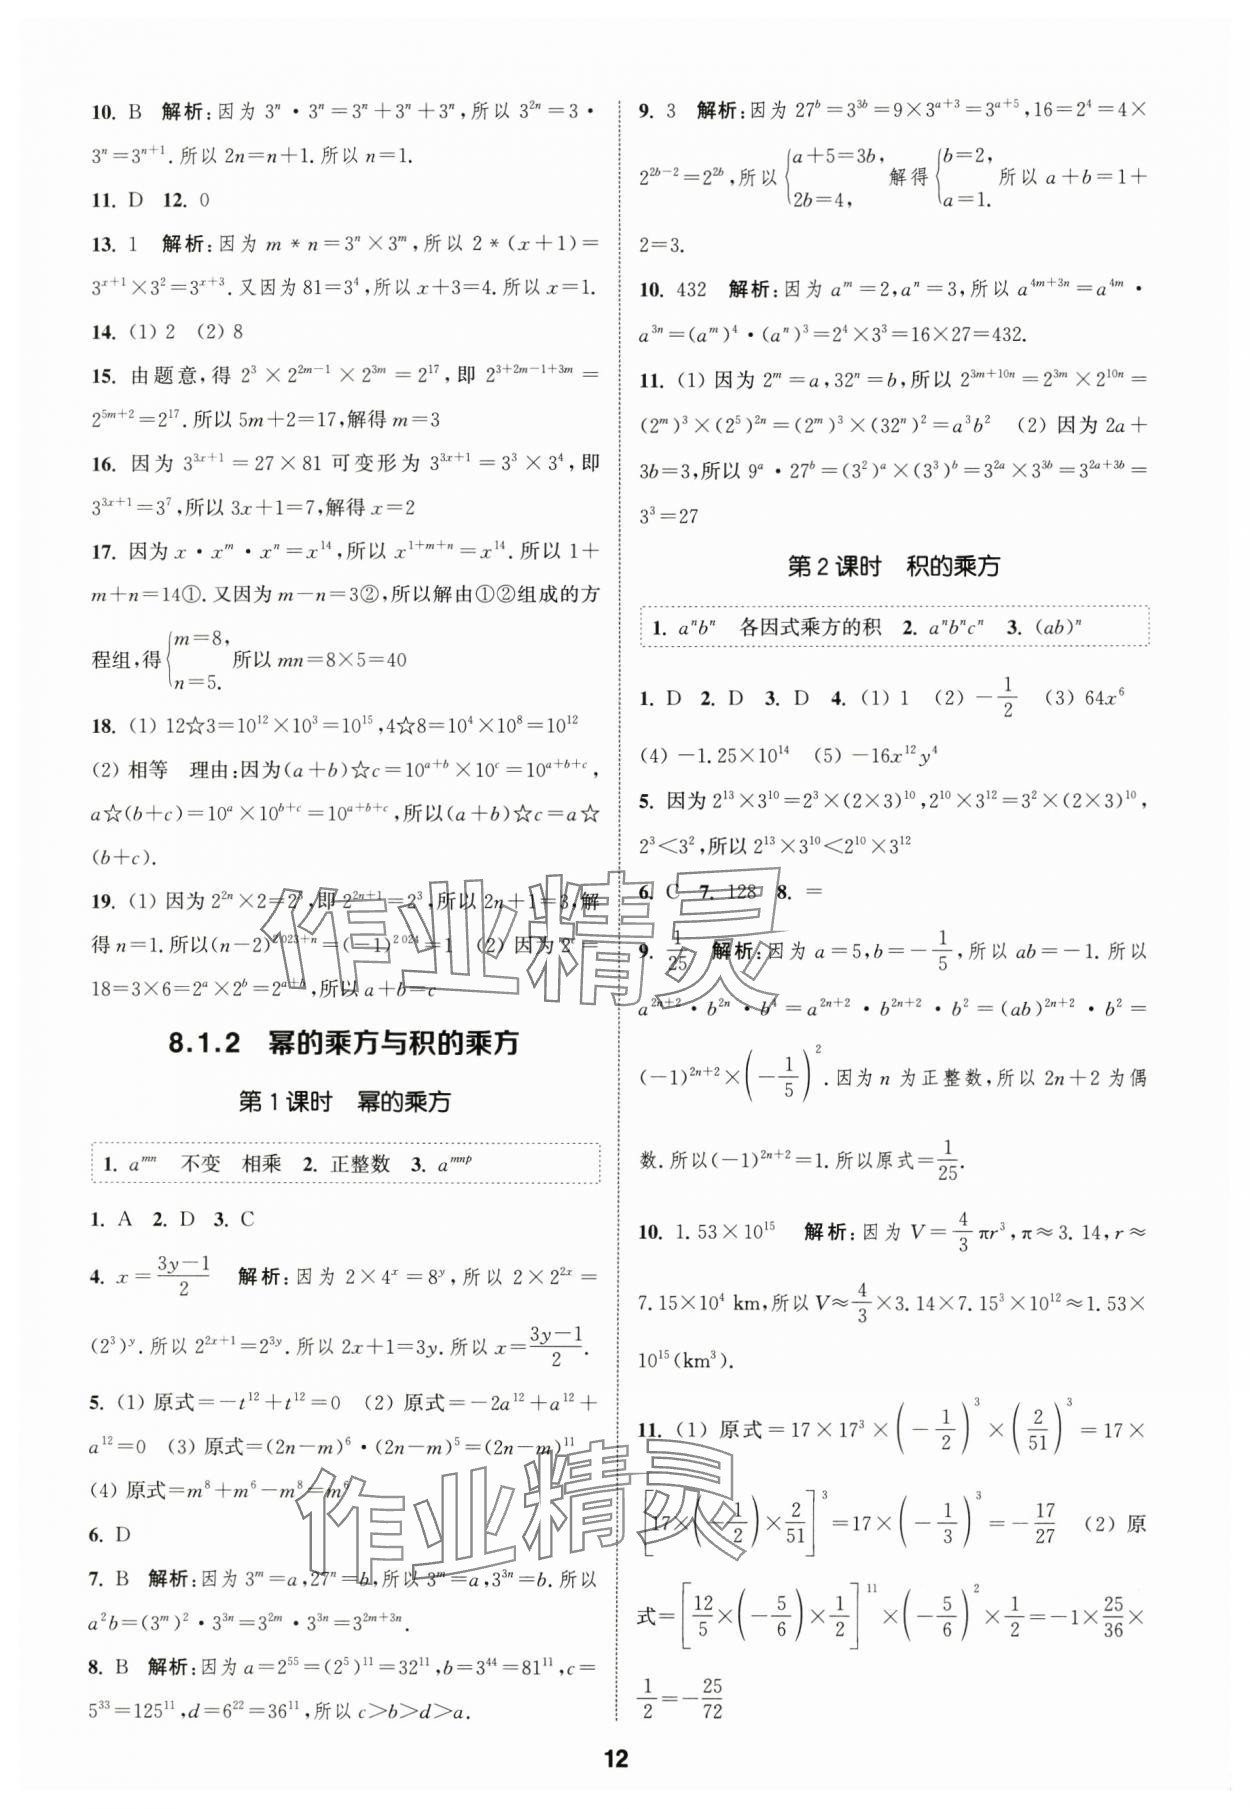 10. B 解析:因为 3ⁿ·3ⁿ=3ⁿ+3ⁿ+3ⁿ,所以 3²ⁿ=3·
3ⁿ=3ⁿ⁺¹.所以 2n=n+1.所以 n=1.
11. D 12. 0
13. 1 解析:因为 m*n=3ⁿ×3ᵐ,所以 2*(x+1)=
3ˣ⁺¹×3²=3ˣ⁺³.又因为 81=3⁴,所以 x+3=4.所以 x=1.
14. (1) 2 (2) 8
15. 由题意,得 2³×2^(2m-1)×2^(3m)=2¹⁷,即 2^(3+2m-1+3m)=
2^(5m+2)=2¹⁷.所以 5m+2=17,解得 m=3
16. 因为 3^(3x+1)=27×81 可变形为 3^(3x+1)=3³×3⁴,即
3^(3x+1)=3⁷,所以 3x+1=7,解得 x=2
17. 因为 x·xᵐ·xⁿ=x¹⁴,所以 x^(1+m+n)=x¹⁴.所以 1+
m+n=14①.又因为 m-n=3②,所以解由①②组成的方
程组,得{m=8, n=5. 所以 mn=8×5=40
18. (1) 12☆3=10¹²×10³=10¹⁵,4☆8=10⁴×10⁸=10¹²
(2) 相等 理由:因为(a+b)☆c=10^(a+b)×10^c=10^(a+b+c),
a☆(b+c)=10^a×10^(b+c)=10^(a+b+c),所以(a+b)☆c=a☆
(b+c).
19. (1) 因为 2^(2n)×2=2³,即 2^(2n+1)=2³,所以 2n+1=3,解
得 n=1.所以(n-2)^(2023+n)=(-1)^2024=1 (2) 因为 2^c=
18=3×6=2^a×2^b=2^(a+b),所以 a+b=c
8.1.2 幂的乘方与积的乘方
第1课时 幂的乘方
1. a^(mn) 不变 相乘 2. 正整数 3. a^(mnp)
1. A 2. D 3. C
4. x=(3y-1)/2 解析:因为 2×4^x=8^y,所以 2×2^(2x)=
(2³)^y.所以 2^(2x+1)=2^(3y).所以 2x+1=3y.所以 x=(3y-1)/2.
5. (1) 原式=-t¹²+t¹²=0 (2) 原式=-2a¹²+a¹²+
a¹²=0 (3) 原式=(2n-m)⁶·(2n-m)⁵=(2n-m)¹¹
(4) 原式=m⁸+m⁶-m⁸=m⁶
6. D
7. B 解析:因为 3^m=a,27^n=b,所以 3^m=a,3^(3n)=b.所以
a²b=(3^m)²·3^(3n)=3^(2m)·3^(3n)=3^(2m+3n).
8. B 解析:因为 a=2⁵⁵=(2⁵)¹¹=32¹¹,b=3⁴⁴=81¹¹,c=
5³³=125¹¹,d=6²²=36¹¹,所以 c>b>d>a.
9. 3 解析:因为 27^b=3^(3b)=9×3^(a+3)=3^(a+5),16=2⁴=4×
2^(2b-2)=2^(2b),所以{a+5=3b, 2b=4, 解得{b=2, a=1. 所以 a+b=1+
2=3.
10. 432 解析:因为 a^m=2,a^n=3,所以 a^(4m+3n)=a^(4m)·
a^(3n)=(a^m)⁴·(a^n)³=2⁴×3³=16×27=432.
11. (1) 因为 2^m=a,32^n=b,所以 2^(3m+10n)=2^(3m)×2^(10n)=
(2^m)³×(2⁵)^(2n)=(2^m)³×(32^n)²=a³b² (2) 因为 2a+
3b=3,所以 9^a·27^b=(3²)^a×(3³)^b=3^(2a)×3^(3b)=3^(2a+3b)=
3³=27
第2课时 积的乘方
1. a^n b^n 各因式乘方的积 2. a^n b^n c^n 3. (ab)^n
1. D 2. D 3. D 4. (1) 1 (2) -1/2 (3) 64x⁶
(4) -1.25×10¹⁴ (5) -16x¹²y⁴
5. 因为 2¹³×3¹⁰=2³×(2×3)¹⁰,2¹⁰×3¹²=3²×(2×3)¹⁰,
2³<3²,所以 2¹³×3¹⁰<2¹⁰×3¹²
6. C 7. 128 8. =
9. 1/25 解析:因为 a=5,b=-1/5,所以 ab=-1.所以
a^(2n+2)·b^(2n)·b⁴=a^(2n+2)·b^(2n+2)·b²=(ab)^(2n+2)·b²=
(-1)^(2n+2)×(-1/5)².因为 n 为正整数,所以 2n+2 为偶
数.所以(-1)^(2n+2)=1.所以原式=1/25.
10. 1.53×10¹⁵ 解析:因为 V=4/3 πr³,π≈3.14,r≈
7.15×10⁴ km,所以 V≈4/3×3.14×7.15³×10¹²≈1.53×
10¹⁵(km³).
11. (1) 原式=17×17³×(-1/2)³×(2/51)³=17×
[17×(-1/2)×2/51]³=17×(-1/3)³=-17/27 (2) 原
式=[12/5×(-5/6)×1/2]¹¹×(-5/6)²×1/2=-1×25/36×
1/2=-25/72
12
作业精灵
作业精灵